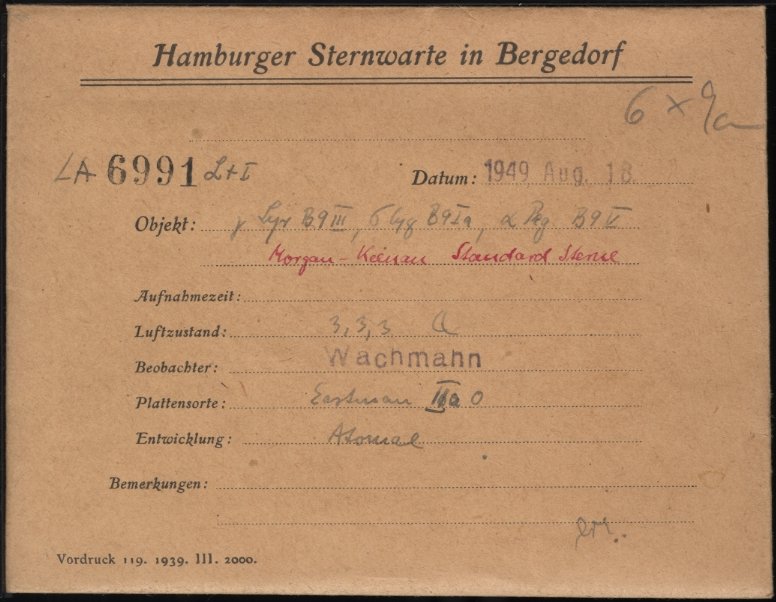 Hamburger Sternwarte in Bergedorf
6 × 9
LA 6991 L+I Datum: 1949 Aug. 18
Objekt: γ Lyr B9 III, σ Cyg B9 Ia, α Peg B9 V
Morgan-Keenan Standard Sterne
Aufnahmezeit:
Luftzustand: 3, 3, 3
Beobachter: Wachmann
Plattensorte: Eastman IIa O
Entwicklung: Atomal
Bemerkungen:
Vordruck 119. 1939. III. 2000.